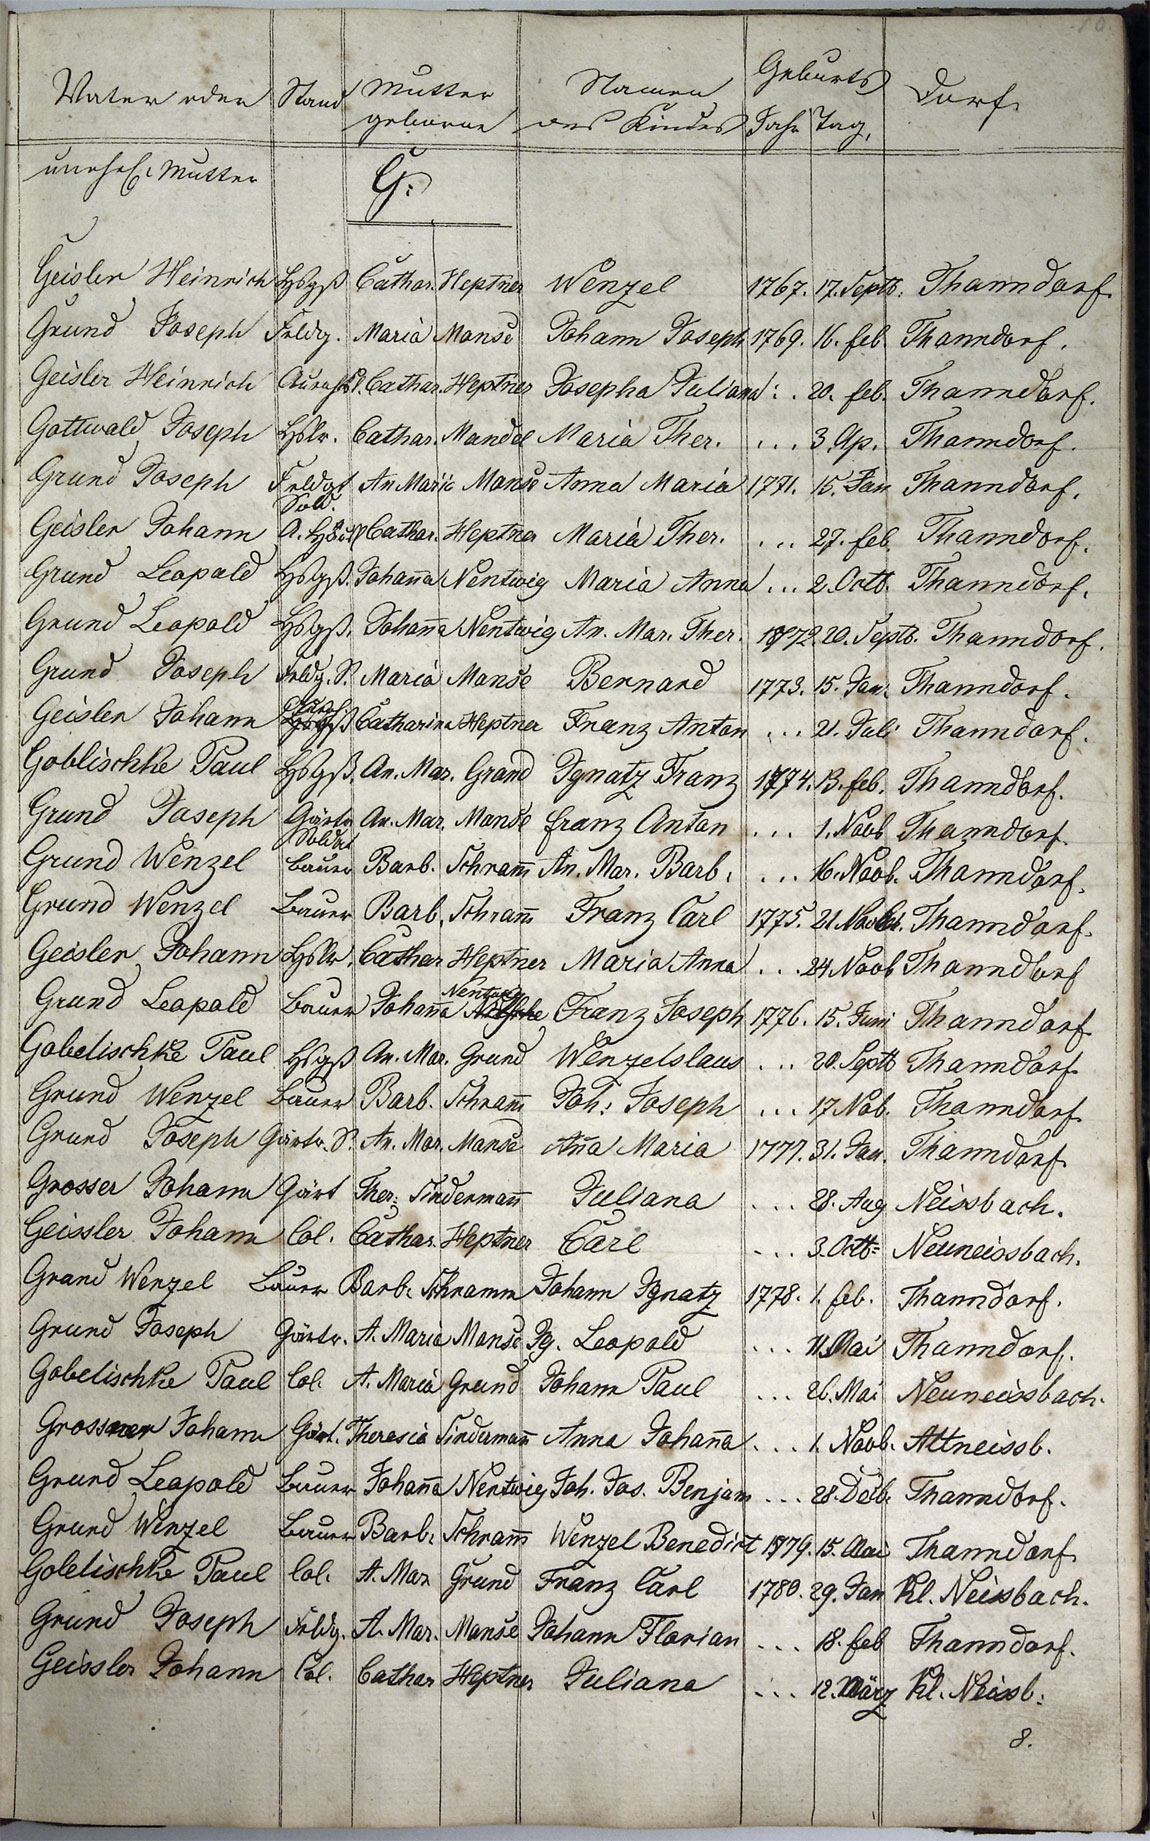 Vater oder Stand Mutter Namen Geburts Dorf.
geborne des Kindes Jahr Tag.
unehel. Mutter G:
Geisler Heinrich Hsgß Cathar. Heptner Wenzel 1767. 17. Septb: Thanndorf.
Grund Joseph Feldg. Maria Manse Johann Joseph 1769. 16. feb. Thanndorf.
Geisler Heinrich Cathar. Heptner Josepha Juliana : . 20. feb. Thanndorf.
Gottwald Joseph Hslr. Cathar. Mandel Maria Ther. ... 3. Ap. Thanndorf.
Grund Joseph Feldgt An. Marie Manse Anna Maria 1771. 15. Jan Thanndorf.
Sold.
Geisler Johann Cathar. Heptner Maria Ther. ... 27. feb. Thanndorf.
Grund Leopold Hsgß. Johan̄a Nentwig Maria Anna ... 2. Octb. Thanndorf.
Grund Leopold Hsgß. Johan̄a Nentwig An. Mar. Ther. 1772. 20. Septb. Thanndorf.
Grund Joseph Feldg. S. Maria Manse Bernard 1773. 15. Jan: Thanndorf.
Geisler Johann Catharina Heptner Franz Anton ... 21. Juli Thanndorf.
Goblischke Paul Hsgß. An. Mar. Grund Ignatz Franz 1774. 13. feb. Thanndorf.
Grund Joseph Gärtn An. Mar. Manse franz Anton ... 1. Novb Thanndorf.
Soldat
Grund Wenzel Bauer Barb. Schram̄ An. Mar. Barb. ... 16. Novb. Thanndorf.
Grund Wenzel Bauer Barb. Schram̄ Franz Carl 1775. 21. Thanndorf.
Geisler Johann Hslr. Cathar Heptner Maria Anna ... 24 Novb Thanndorf
Nentwig
Grund Leopold Bauer Johan̄a Franz Joseph 1776. 15. Juni Thanndorf.
Gobelischke Paul Hsgß An. Mar. Grund Wenzelslaus ... 20. Septb Thanndorf.
Grund Wenzel Bauer Barb. Schram̄ Joh: Joseph ... 17 Nob. Thanndorf.
Grund Joseph Gärtn. S. An. Mar. Manse An̄a Maria 1777. 31. Jan. Thanndorf.
Grosser Johann Gärt Ther: Sinderman̄ Juliana ... 28. Aug Neissbach.
Geissler Johann Col. Cathar. Heptner Carl ... 3. Octb= Neuneissbach.
Grund Wenzel Bauer Barb. Schramm Johann Ignatz 1778. 1. feb. Thanndorf.
Grund Joseph Gärtn. A. Maria Manse Ig. Leopold ... 11. Mai Thanndorf.
Gobelischke Paul Col. A. Maria Grund Johann Paul ... 26. Mai Neuneissbach.
Grossner Johann Gärt. Theresia Sinderman̄ Anna Johan̄a ... 1. Novb. Altneissb.
Grund Leopold Bauer Johan̄a Nentwig Joh. Jos. Benjam ... 28. Deb. Thanndorf.
Grund Wenzel Bauer Barb. Schram̄ Wenzel Benedict 1779. 15. Mai Thanndorf.
Gobelischke Paul Col. A. Mar Grund Franz Carl 1780. 29. Jan Kl. Neissbach.
Grund Joseph Feldg. A. Mar. Manse Johann Florian ... 18. feb Thanndorf.
Geissler Johann Col. Cathar Heptner Juliana ... 12. März Kl. Neissb.
8.